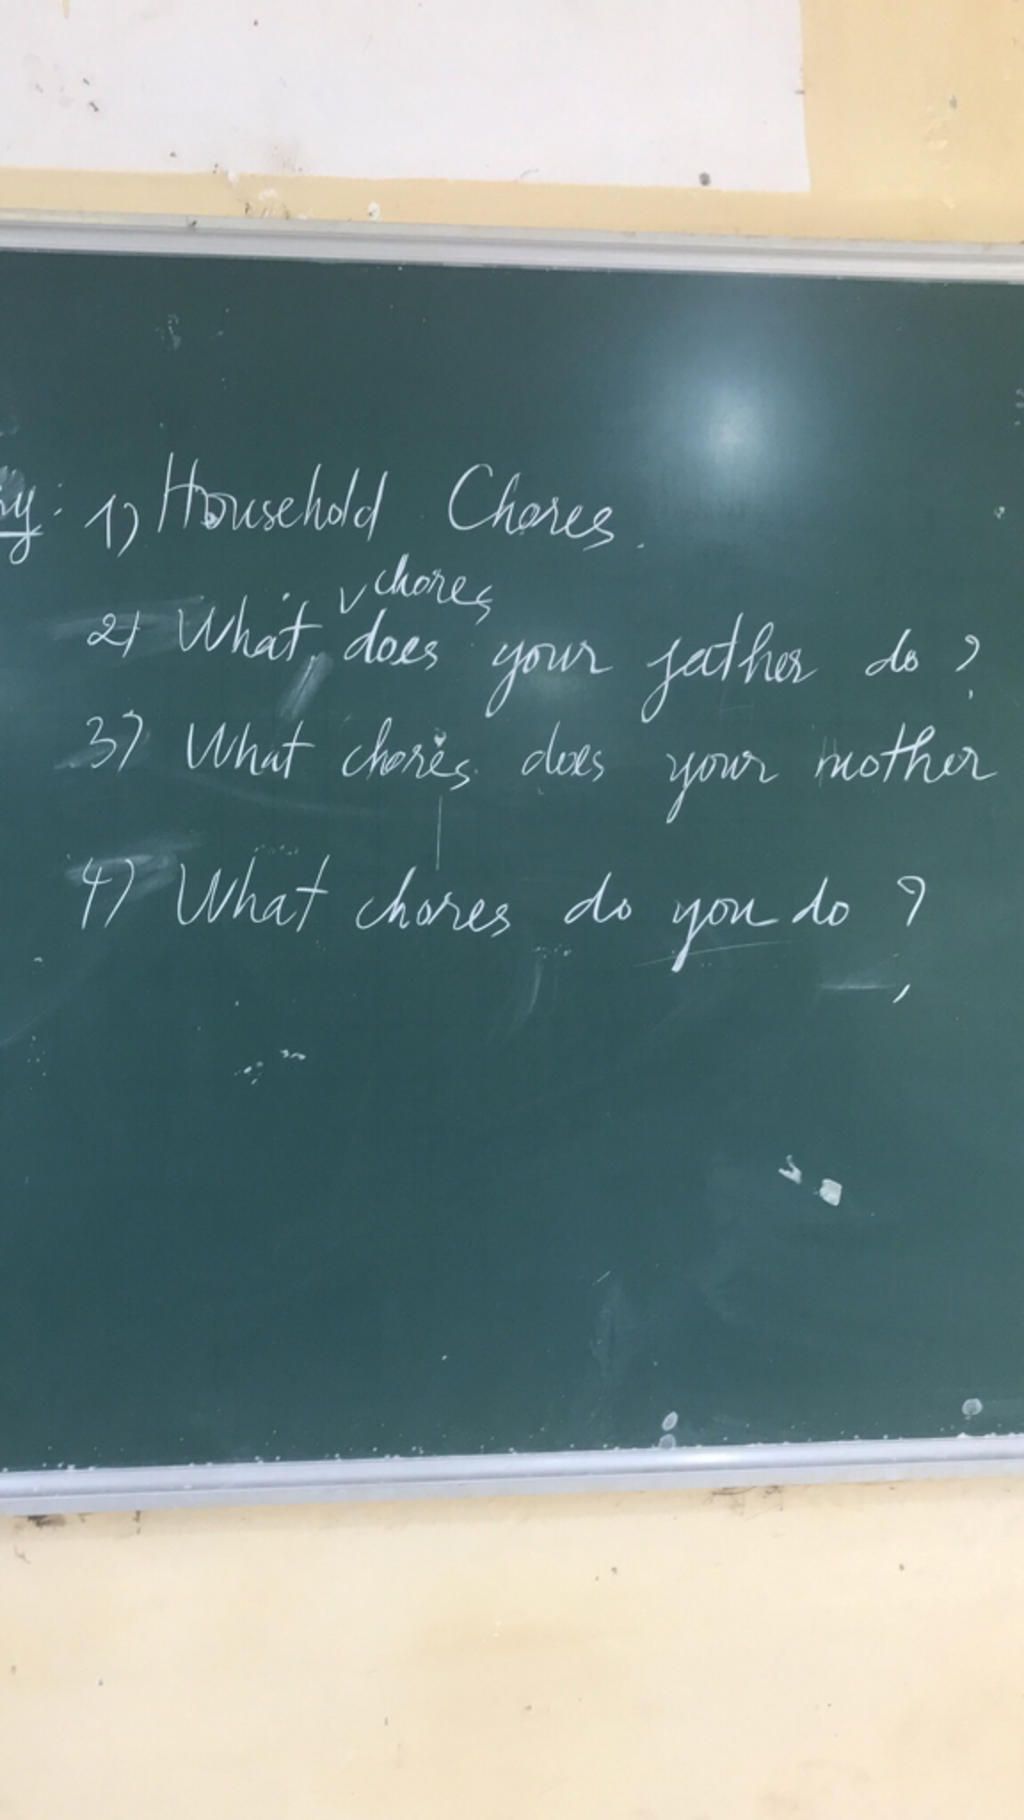 1) Household Chores.
chores
2) What, v does your father do ?
3) What chores does your mother
4) What chores do you do ?